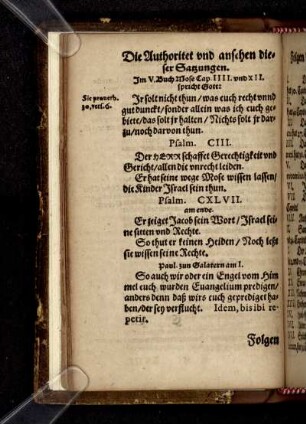 Die Authoritet vnd ansehen die-
ser Satzungen.
Im V. Buch Mose Cap. IIII. vnd XII.
spricht Gott:
Sie prouerb.
30. vers. 6.
Ir solt nicht thun / was euch recht vnnd
gut dunckt / sonder allein was ich euch ge-
biete / das solt jr halten / Nichts solt jr dar-
zu / noch darvon thun.
Psalm. CIII.
Der HERR schaffet Gerechtigkeit vnd
Gericht / allen die vnrecht leiden.
Er hat seine wege Mose wissen lassen /
die Kinder Israel sein thun.
Psalm. CXLVII.
am ende.
Er zeiget Jacob sein Wort / Israel sei-
ne sitten vnd Rechte.
So thut er keinen Heiden / Noch leßt
sie wissen seine Rechte.
Paul. zun Galatern am I.
So auch wir oder ein Engel vom Him
mel euch wurden Euangelium predigen /
anders denn daß wirs euch geprediget ha-
ben / der sey verflucht. Idem, bis ibi re-
petit.
Folgen